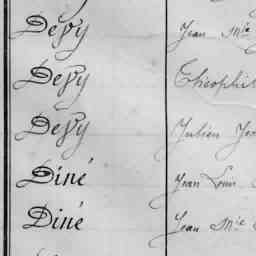 Devy Jean Mie
Devy Théophil
Devy Julien
Diné Jean Louis
Diné Jean Mie